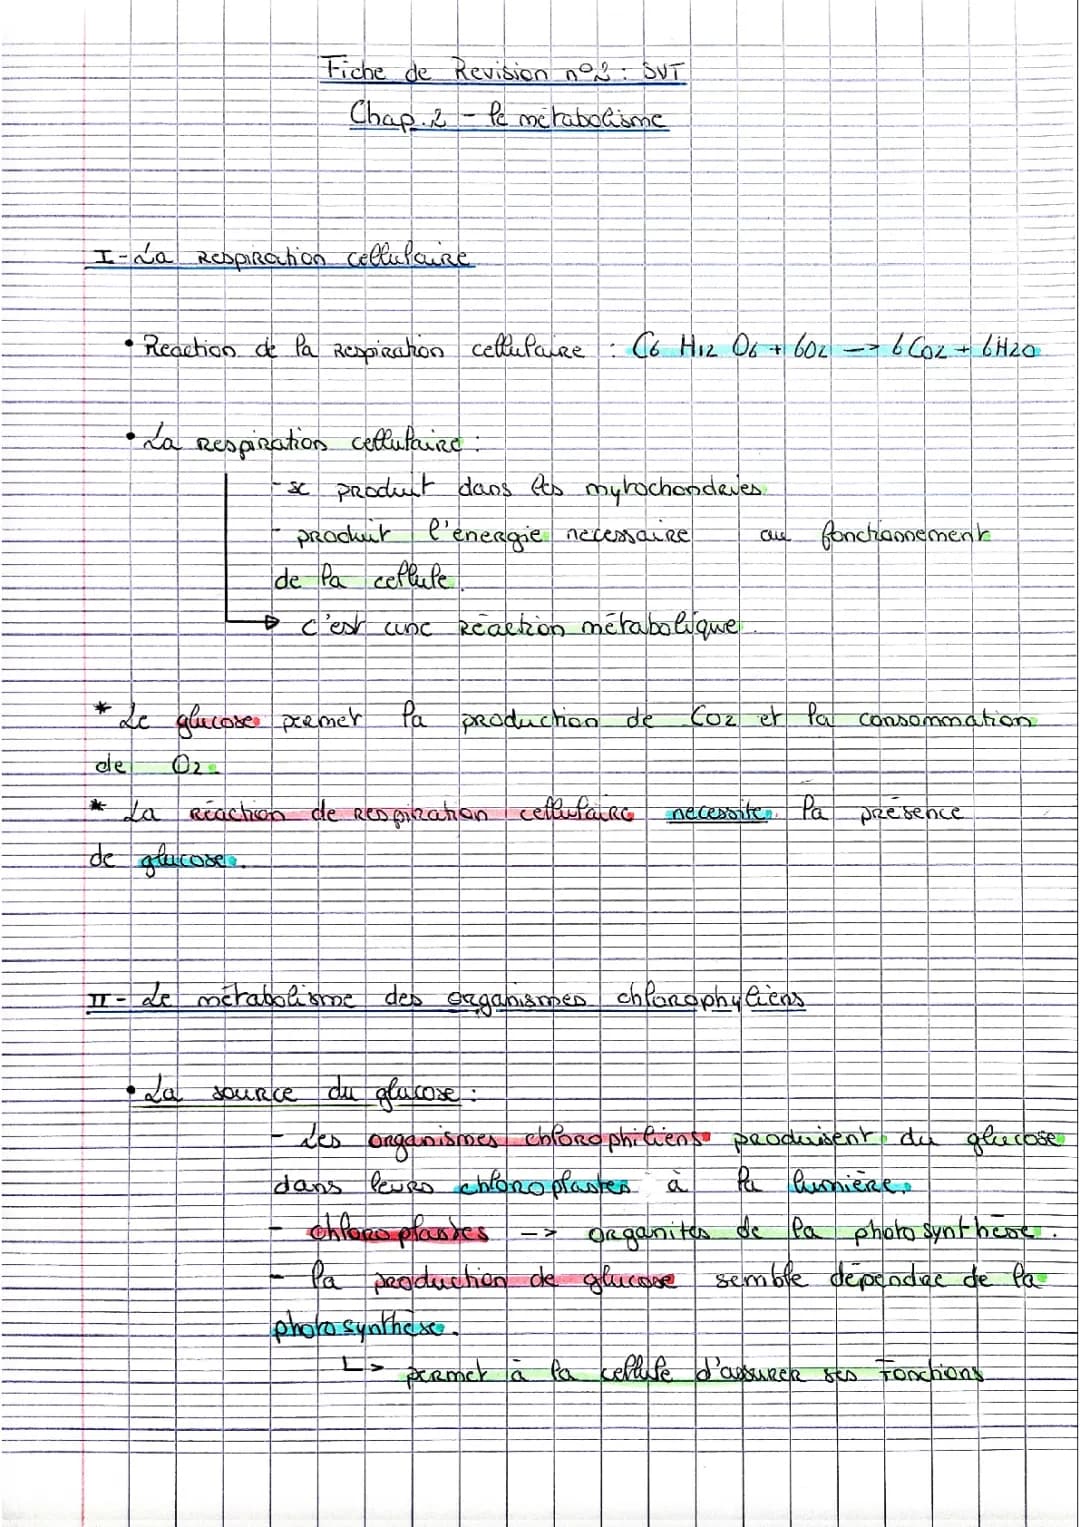 Fiche de Revision n°2 : SVT
Chap.2 - le métabolisme
I - La Respiration cellulaire
• Reaction de la Respiration cellulaire : C6 H12 O6 + 6O2 --> 6CO2 + 6H2O
• La Respiration cellulaire :
- se produit dans les mytochondries.
- produit l'énergie necessaire au fonctionnement
de la cellule.
c'est une réaction métabolique.
* Le glucose permet la production de CO2 et la consommation
de O2.
* La réaction de respiration cellulaire necessite la présence
de glucose.
II - Le métabolisme des organismes chlorophyliens
• La source du glucose :
- Les organismes chlorophiliens produisent du glucose
dans leurs chloroplastes à la lumière.
- chloroplastes --> organites de la photosynthèse.
- la production de glucose semble dépendre de la
photosynthèse.
↳> permet à la cellule d'assurer ses fonctions